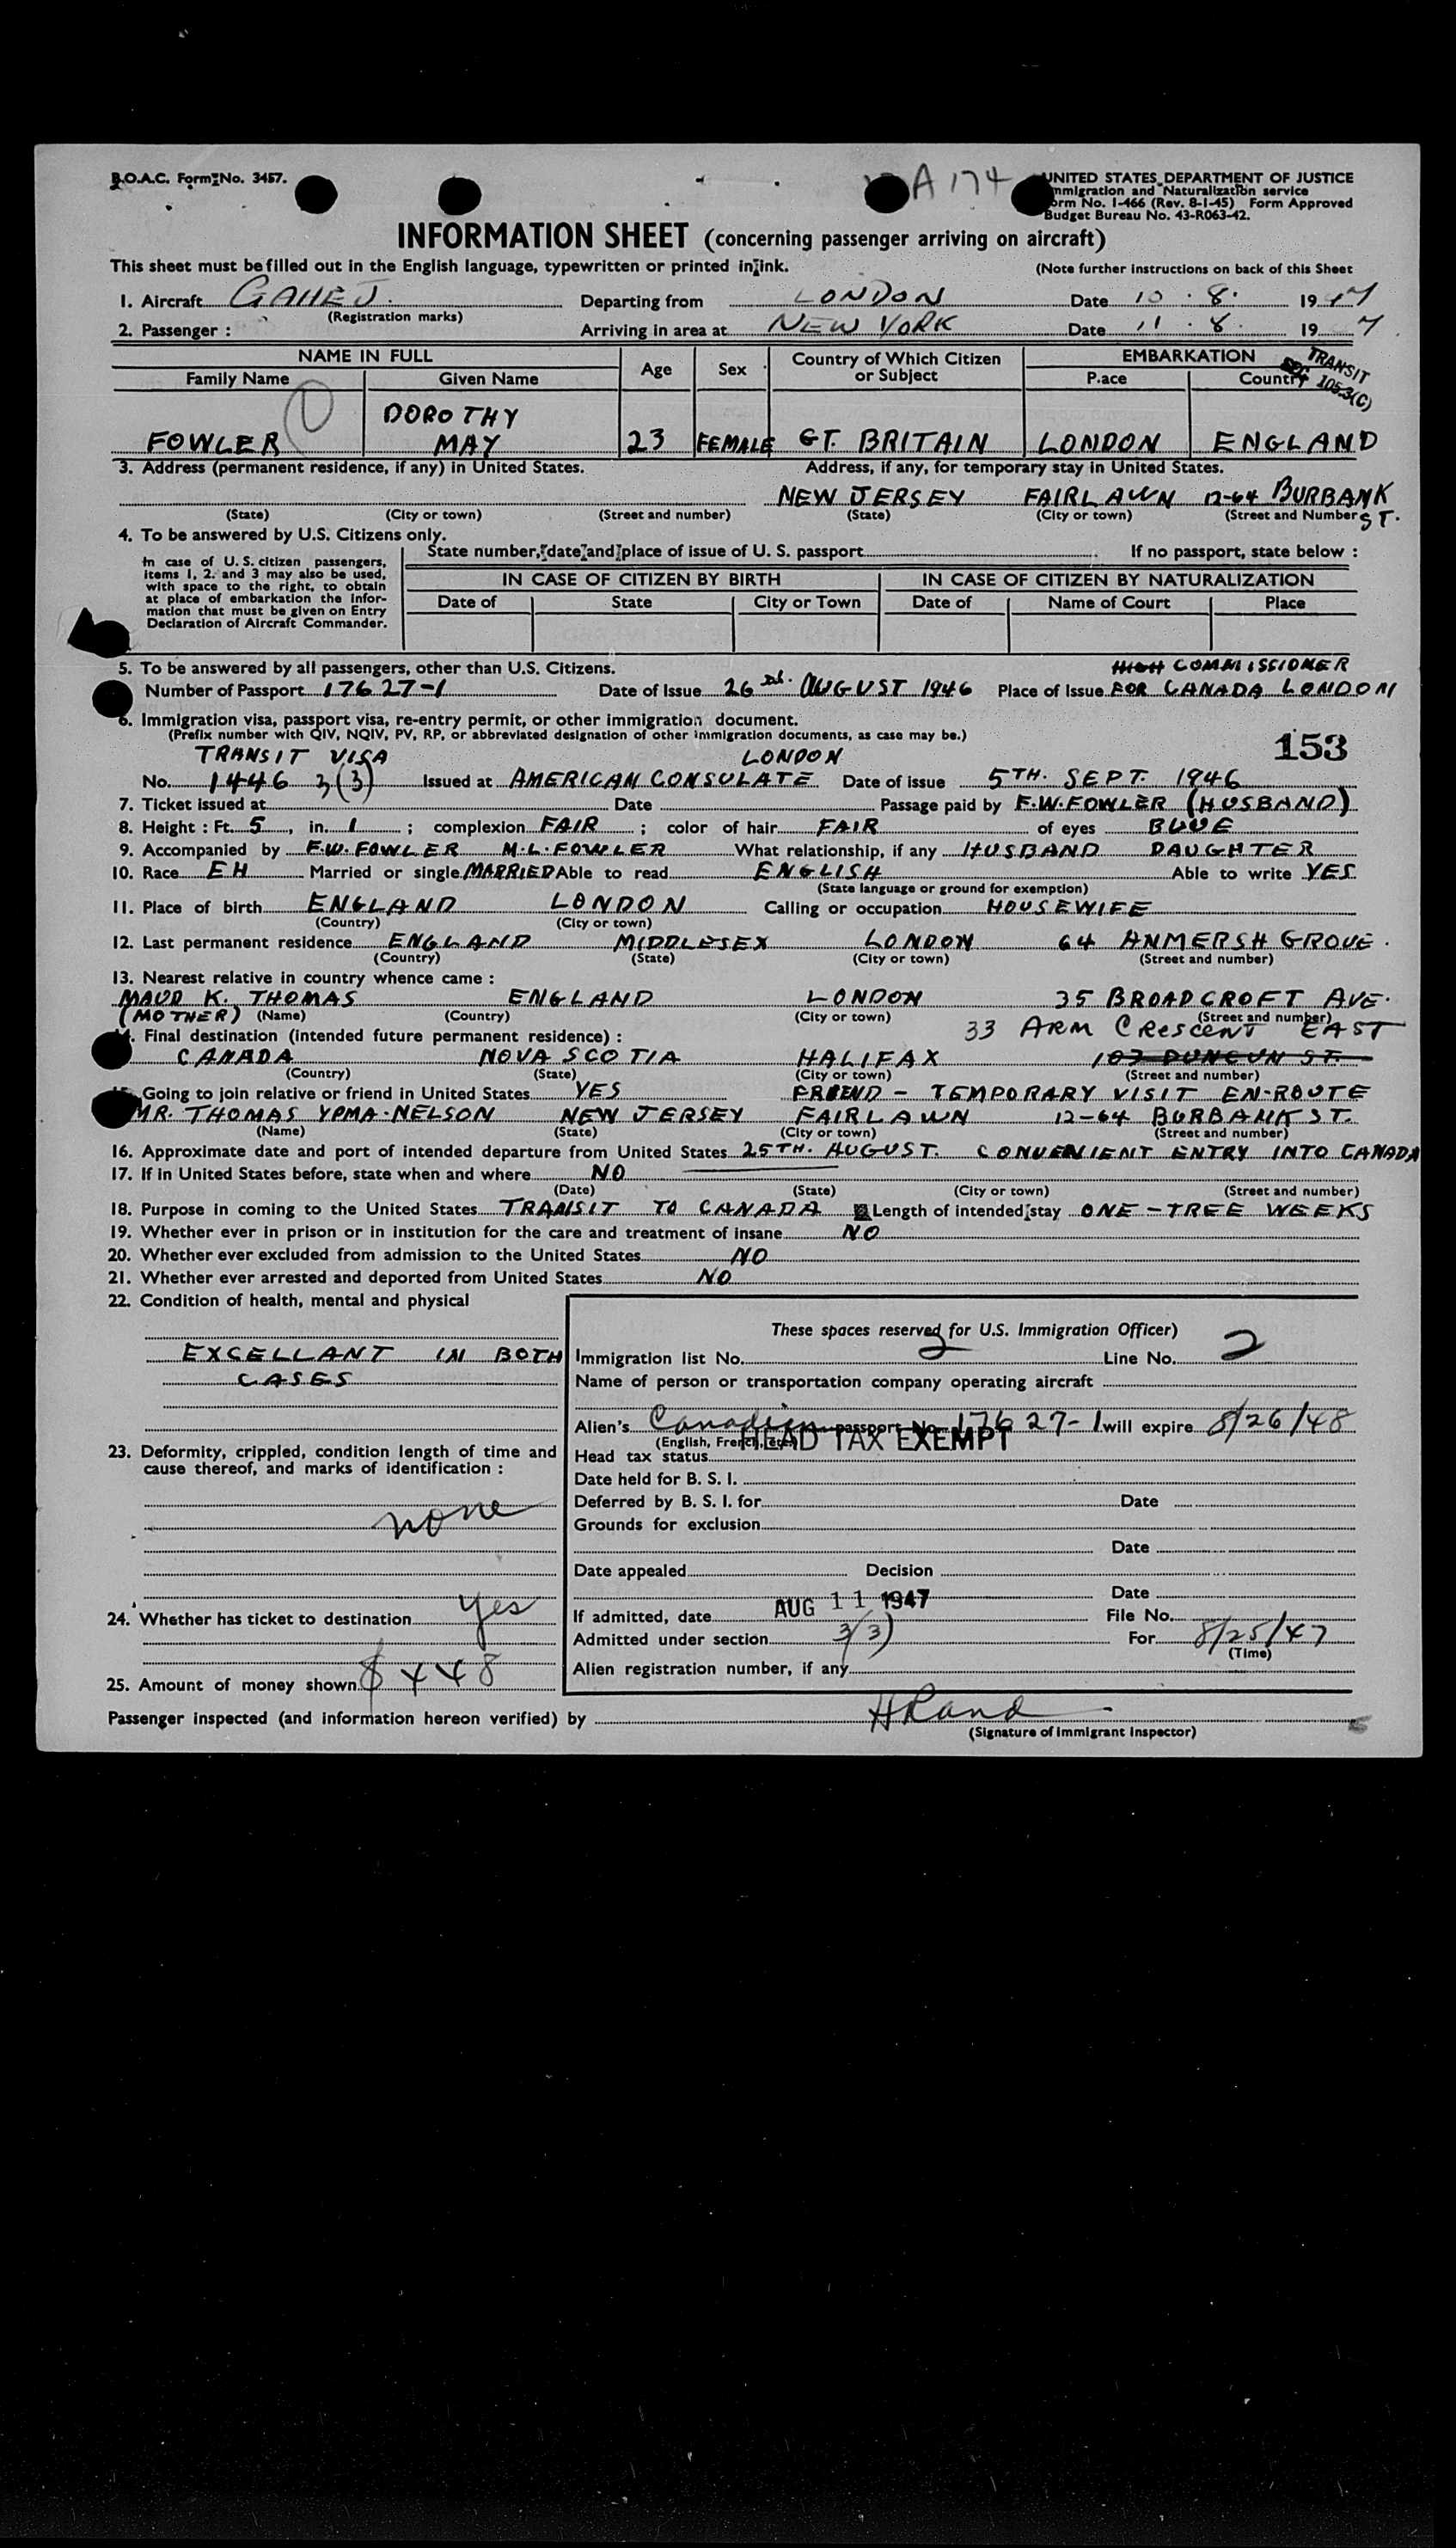 B.O.A.C. Form No. 3457.
A 174
UNITED STATES DEPARTMENT OF JUSTICE
Immigration and Naturalization service
Form No. I-466 (Rev. 8-1-45) Form Approved
Budget Bureau No. 43-R063-42.
INFORMATION SHEET (concerning passenger arriving on aircraft)
This sheet must be filled out in the English language, typewritten or printed in ink. (Note further instructions on back of this Sheet
1. Aircraft GAHEJ. Departing from LONDON Date 10.8. 1947
(Registration marks)
2. Passenger : Arriving in area at NEW YORK Date 11.8. 19 7
NAME IN FULL Age Sex Country of Which Citizen or Subject EMBARKATION
Family Name Given Name P.ace Country
TRANSIT
SEC 105.3(C)
DOROTHY
FOWLER MAY 23 FEMALE GT. BRITAIN LONDON ENGLAND
3. Address (permanent residence, if any) in United States. Address, if any, for temporary stay in United States.
NEW JERSEY FAIRLAWN 12-64 BURBANK ST.
(State) (City or town) (Street and number) (State) (City or town) (Street and Number
4. To be answered by U.S. Citizens only.
In case of U.S. citizen passengers, items 1, 2. and 3 may also be used, with space to the right, to obtain at place of embarkation the information that must be given on Entry Declaration of Aircraft Commander.
State number, date and place of issue of U. S. passport If no passport, state below :
IN CASE OF CITIZEN BY BIRTH IN CASE OF CITIZEN BY NATURALIZATION
Date of State City or Town Date of Name of Court Place
5. To be answered by all passengers, other than U.S. Citizens. HIGH COMMISSIONER
Number of Passport 17627-1 Date of Issue 26th. AUGUST 1946 Place of Issue FOR CANADA LONDON
6. Immigration visa, passport visa, re-entry permit, or other immigration document.
(Prefix number with QIV, NQIV, PV, RP, or abbreviated designation of other immigration documents, as case may be.)
153
TRANSIT VISA LONDON
No. 1446 3(3) Issued at AMERICAN CONSULATE Date of issue 5TH. SEPT. 1946
7. Ticket issued at Date Passage paid by F.W.FOWLER (HUSBAND)
8. Height : Ft. 5, in. 1 ; complexion FAIR ; color of hair FAIR of eyes BLUE
9. Accompanied by F.W.FOWLER M.L.FOWLER What relationship, if any HUSBAND DAUGHTER
10. Race EH Married or single MARRIED Able to read ENGLISH Able to write YES
(State language or ground for exemption)
11. Place of birth ENGLAND LONDON Calling or occupation HOUSEWIFE
(Country) (City or town)
12. Last permanent residence ENGLAND MIDDLESEX LONDON 64 ANMERSH GROVE.
(Country) (State) (City or town) (Street and number)
13. Nearest relative in country whence came :
MAUD K. THOMAS ENGLAND LONDON 35 BROADCROFT AVE.
(MOTHER) (Name) (Country) (City or town) (Street and number)
33 ARM CRESCENT EAST
. Final destination (intended future permanent residence) :
CANADA NOVA SCOTIA HALIFAX 103 DUNCUN ST.
(Country) (State) (City or town) (Street and number)
Going to join relative or friend in United States YES FRIEND - TEMPORARY VISIT EN-ROUTE
MR. THOMAS YPMA-NELSON NEW JERSEY FAIRLAWN 12-64 BURBANK ST.
(Name) (State) (City or town) (Street and number)
16. Approximate date and port of intended departure from United States 25TH. AUGUST. CONVENIENT ENTRY INTO CANADA
17. If in United States before, state when and where NO
(Date) (State) (City or town) (Street and number)
18. Purpose in coming to the United States TRANSIT TO CANADA Length of intended stay ONE-TREE WEEKS
19. Whether ever in prison or in institution for the care and treatment of insane NO
20. Whether ever excluded from admission to the United States NO
21. Whether ever arrested and deported from United States NO
22. Condition of health, mental and physical
EXCELLANT IN BOTH
CASES
23. Deformity, crippled, condition length of time and cause thereof, and marks of identification :
none
24. Whether has ticket to destination yes
25. Amount of money shown $448
These spaces reserved for U.S. Immigration Officer)
Immigration list No. 2 Line No. 2
Name of person or transportation company operating aircraft
Alien's Canadian passport No. 17627-1 will expire 8/26/48
(English, French, etc.)
HEAD TAX EXEMPT
Head tax status
Date held for B. S. I.
Deferred by B. S. I. for Date
Grounds for exclusion
Date
Date appealed Decision
Date
If admitted, date AUG 11 1947 File No.
Admitted under section 3(3) For 8/25/47
(Time)
Alien registration number, if any
Passenger inspected (and information hereon verified) by HRand
(Signature of Immigrant Inspector)